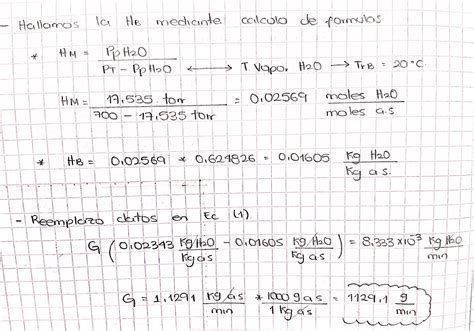 - Hallamos la HB mediante calculo de formulas
* HM = PpH2O / PT - PpH2O ⟷ T. Vapo. H2O → TrB = 20°C
HM = 17,535 torr / 700 - 17,535 torr = 0,02569 moles H2O / moles a.s
* HB = 0,02569 * 0,624826 = 0,01605 Kg H2O / Kg as.
- Reemplazo datos en Ec (1)
G ( 0,02343 Kg H2O / Kg as - 0,01605 Kg H2O / Kg as ) = 8,333 x10^-3 Kg H2O / min
G = 1,1291 Kg as / min * 1000 g as / 1 Kg as = 1129,1 g / min